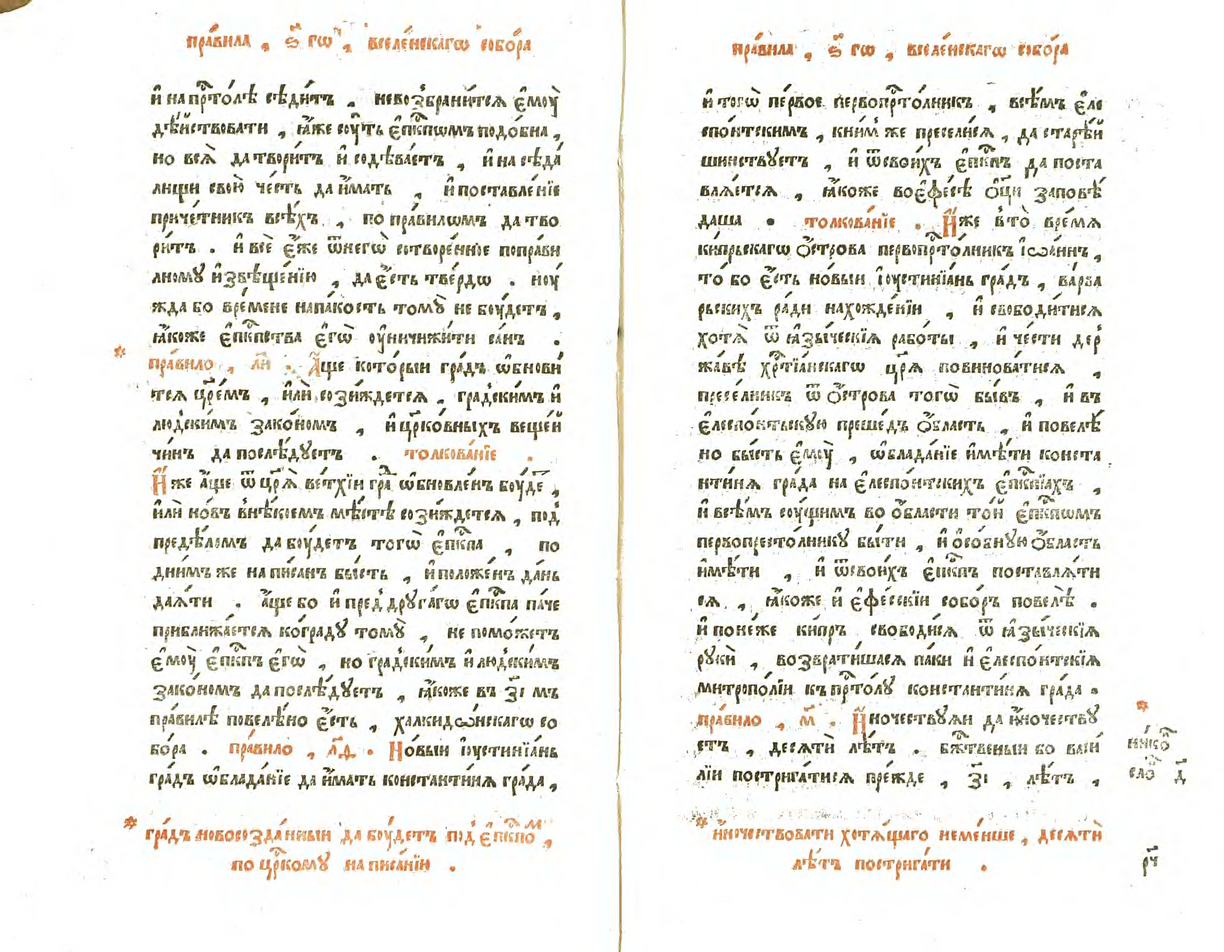 пра́вила , ѕ҃ гѡ , вселе́нскагѡ собо́ра
и҆ на прⷭ҇то́лѣ сѣди́тъ , невозбрани́тсѧ є҆моу̀
дѣ́йствовати , ꙗ҆́же соу́ть є҆пкⷭ҇пѡмъ подо́бна ,
но всѧ̀ да твори́тъ и҆ содѣва́етъ , и҆ на сѣда́
лищи свою̀ че́сть да и҆́мать , и҆ поставле́нїе
приче́тник всѣ́хъ , по пра́вилѡмъ да тво
ри́тъ . и҆ всѐ є҆́же ѿнегѡ̀ сотворе́нное по прави
лному и҆звѣще́нїю , да є҆́сть тве́рдѡ . ноу́
жда бо вре́мене напа́кость томꙋ̀ не боу́детъ ,
ꙗ҆́коже є҆пкⷭ҇пства є҆гѡ̀ оу҆ничижи́ти са́нъ .
пра́вило , ли҃ . А҆́ще кото́рыи гра́дъ ѡ҆бнови́
тсѧ цр҃е́мъ , и҆лѝ сози́ждетсѧ , гра́дскимъ и҆
лю́дскимъ зако́номъ , и҆ цр҃ко́вныхъ веще́й
чи́нъ да послѣ́дуетъ . толкова́нїе .
И҆́же а҆́ще ѿ цр҃ѧ̀ ве́тхїи гра́ ѡ҆бновле́нъ боу́де ,
и҆лѝ но́въ внѣ́коемъ мѣ́стѣ сози́ждетсѧ , под̾
предѣ́ломъ да боу́детъ тогѡ̀ є҆пкⷭ҇па , по
дни́мъ же на пи́санъ бы́сть , и҆ положе́н да́нь
даѧ́ти . а҆́ще бо и҆ пред̾ дрꙋга́гѡ є҆пкⷭ҇па па́че
приближа́етсѧ ко гра́ду томꙋ̀ , не помо́жетъ
є҆моу̀ є҆пкⷭ҇пъ є҆гѡ̀ , но гра́дскимъ и҆ лю́дскимъ
зако́ном да послѣ́дуетъ , ꙗ҆́коже въ з҃і мъ
пра́вилѣ повелѣ́но є҆́сть , халкидѡ́нскагѡ со
бо́ра . пра́вило , лѳ҃ . Но́выи і҆оустинїа́нь
гра́дъ ѡ҆блада́нїе да и҆́мать константи́нѧ гра́да ,
гра́дъ новосозда́нныи да боу́детъ под̾ є҆пкⷭ҇поⷨ ,
по цр҃кому на писа́нїи .
пра́вила , ѕ҃ гѡ , вселе́нскагѡ собо́ра
и҆ тогѡ̀ пе́рвое первопрⷭ҇то́лникъ , всѣ́мъ є҆ле
спо́нтскимъ , кни́м же пресели́сѧ , да старѣ́й
шинствуетъ , и҆ ѿсвои́хъ є҆пкⷭ҇пъ да поста
влѧ́етсѧ , ꙗ҆́коже во є҆фе́сѣ ѻ҆ц҃ы заповѣ́
даша . толкова́нїе . И҆́же вто̀ вре́мѧ
ки́прьскагѡ ѻ҆́строва первопрⷭ҇то́лник і҆ѡа́ннъ ,
то́ бо є҆́сть но́выи і҆оустинїа́нь гра́дъ , ва́рва
рьских ра́ди нахожде́нїи , и҆ свободи́тисѧ
хотѧ̀ ѿ ꙗ҆зы́ческїѧ рабо́ты , и҆ че́сти дер
жа́вѣ хрⷭ҇тїа́нскагѡ цр҃ѧ̀ повинова́тисѧ ,
пресе́лникъ ѿ ѻ҆́строва тогѡ̀ бы́въ , и҆ въ
є҆леспо́нтьскую преше́дъ ѻ҆́бласть , и҆ повелѣ́
но бы́сть є҆моу̀ , ѡ҆блада́нїе и҆мѣ́ти конста
нти́нѧ гра́да на є҆леспо́нтских є҆пкⷭ҇пїахъ ,
и҆ всѣ́мъ соу́щимъ во ѻ҆́бласти то́й є҆пкⷭ҇пѡмъ
первопресто́лнику бы́ти , и҆ ѻ҆со́бную ѻ҆́бласть
и҆мѣ́ти , и҆ ѿсвои́хъ є҆пкⷭ҇пъ поставлѧ́ти
сѧ , ꙗ҆́коже и҆ є҆фе́сскїи собо́ръ повелѣ̀ .
и҆ поне́же ки́пръ свободи́сѧ ѿ ꙗ҆зы́ческїѧ
рукѝ , возврати́шасѧ па́ки и҆ є҆леспо́нтскїѧ
митропо́лїи къ прⷭ҇то́лу константи́нѧ гра́да .
пра́вило , м҃ . И҆́ночествуѧи да и҆́ночеству
етъ , десѧтѝ лѣ́тъ . бж҃твеныи бо васи́
лїи постриға́тисѧ пре́жде , з҃і , лѣ́тъ ,
и҆́ночествовати хотѧ́щаго неме́нше , десѧтѝ
лѣ́тъ постриға́ти .
рч҃